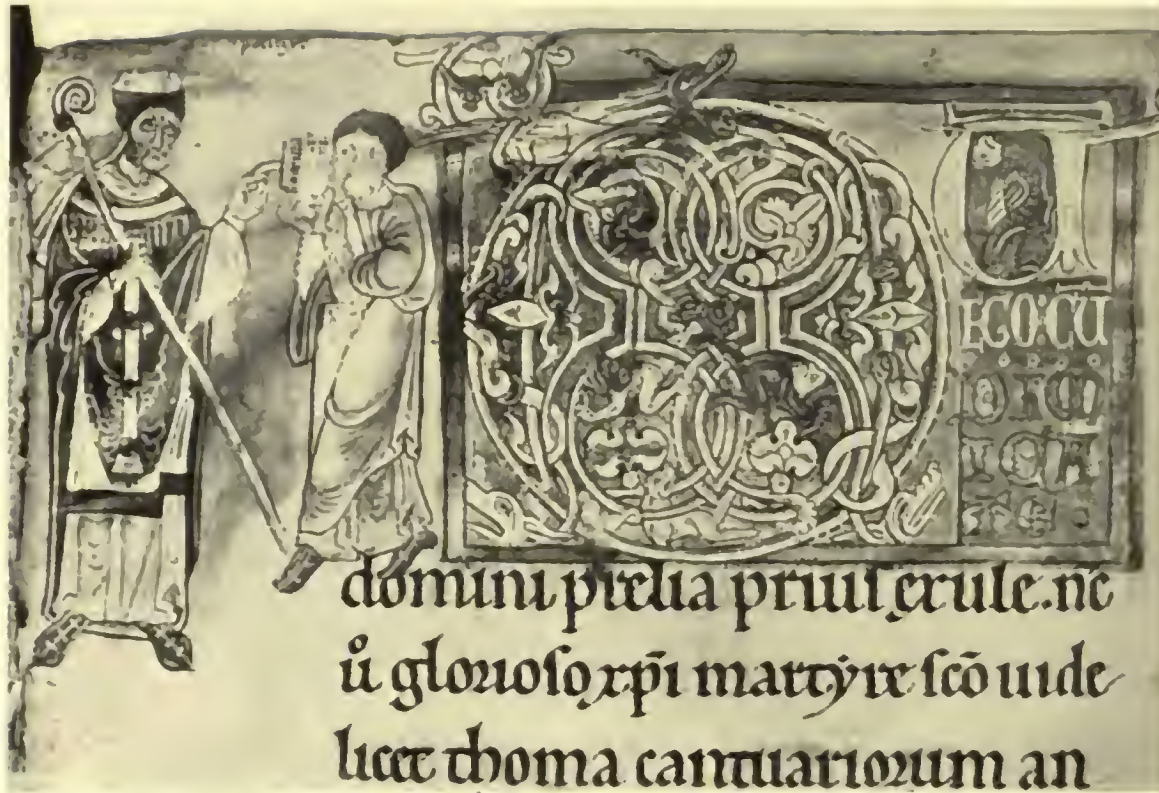 EGO:CU
domini prelia priuſ exule. nc̄
ů glorioſo xp̄i martẏre ſcō uide
licet thoma cantuariorum an